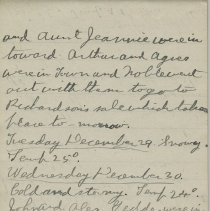 and Aunt Jeannie were in
toward Arthur and Agnes
were in Town and Noble went
out with them to go to
Richardson's sale which takes
place to-morrow.
Tuesday December 29. Snowy.
Temp 25°.
Wednesday December 30.
Cold and stormy. Temp 24°.
John and Alex Geddes were in